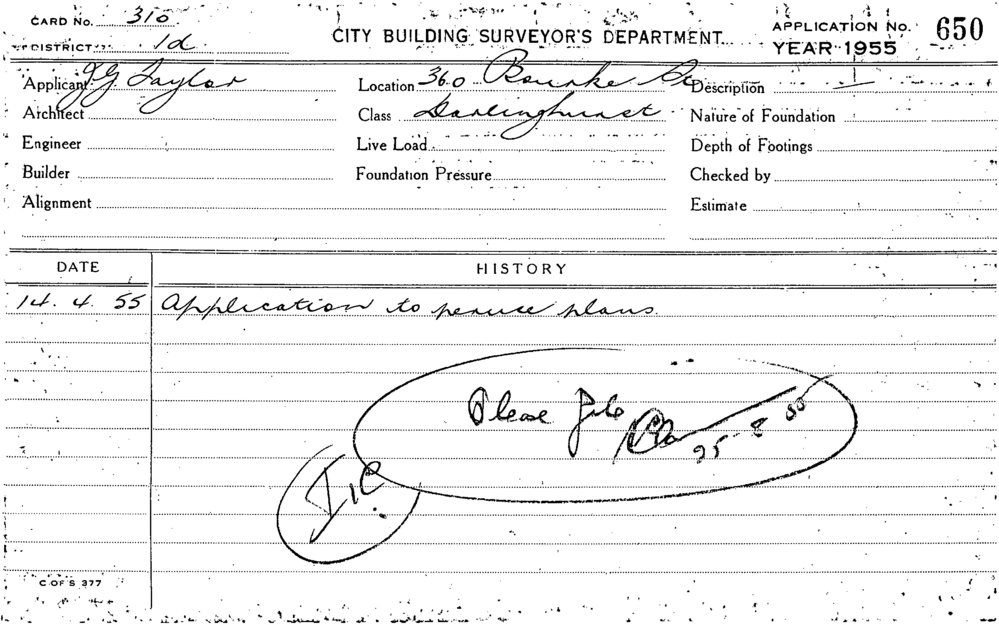 CARD No. 310
DISTRICT 1d
CITY BUILDING SURVEYOR'S DEPARTMENT
APPLICATION No. 650
YEAR 1955
Applicant J G Taylor
Location 360 Bourke St
Description
Architect
Class Darlinghurst
Nature of Foundation
Engineer
Live Load
Depth of Footings
Builder
Foundation Pressure
Checked by
Alignment
Estimate
DATE HISTORY
14. 4. 55 Application to peruse plans.
Please file
25-8-55
C OF S 377